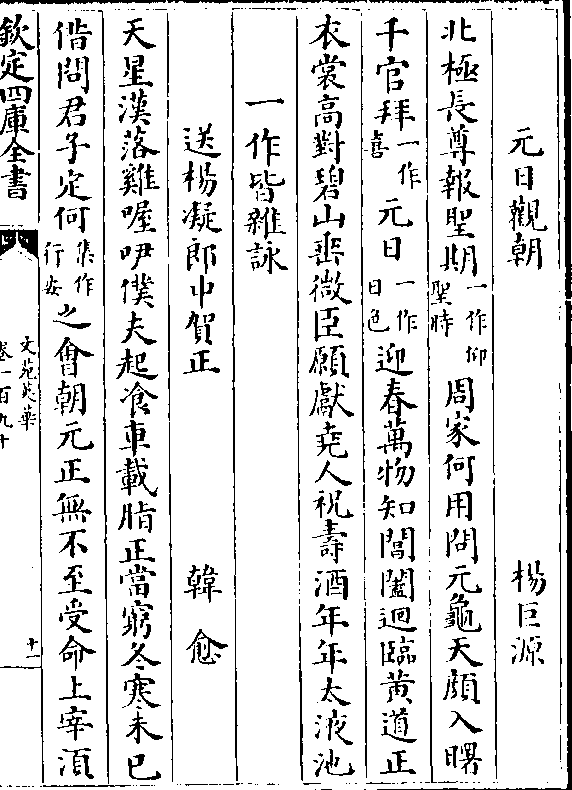 元日觀朝　楊巨源
北極長尊報聖期一作仰聖時周家何用問元龜天顔入曙
千官拜一作喜元日一作日色迎春萬物知閶闔迥臨黄道正
衣裳高對碧山垂微臣願獻堯人祝壽酒年年太液池
一作皆雜詠
送楊凝郎中賀正　韓愈
天星漢落雞喔咿僕夫起飡車載脂正當窮冬寒未已
偕問君子定何集作行安之會朝元正無不至受命上宰須
欽定四庫全書
文苑英華
卷一百九十
十一